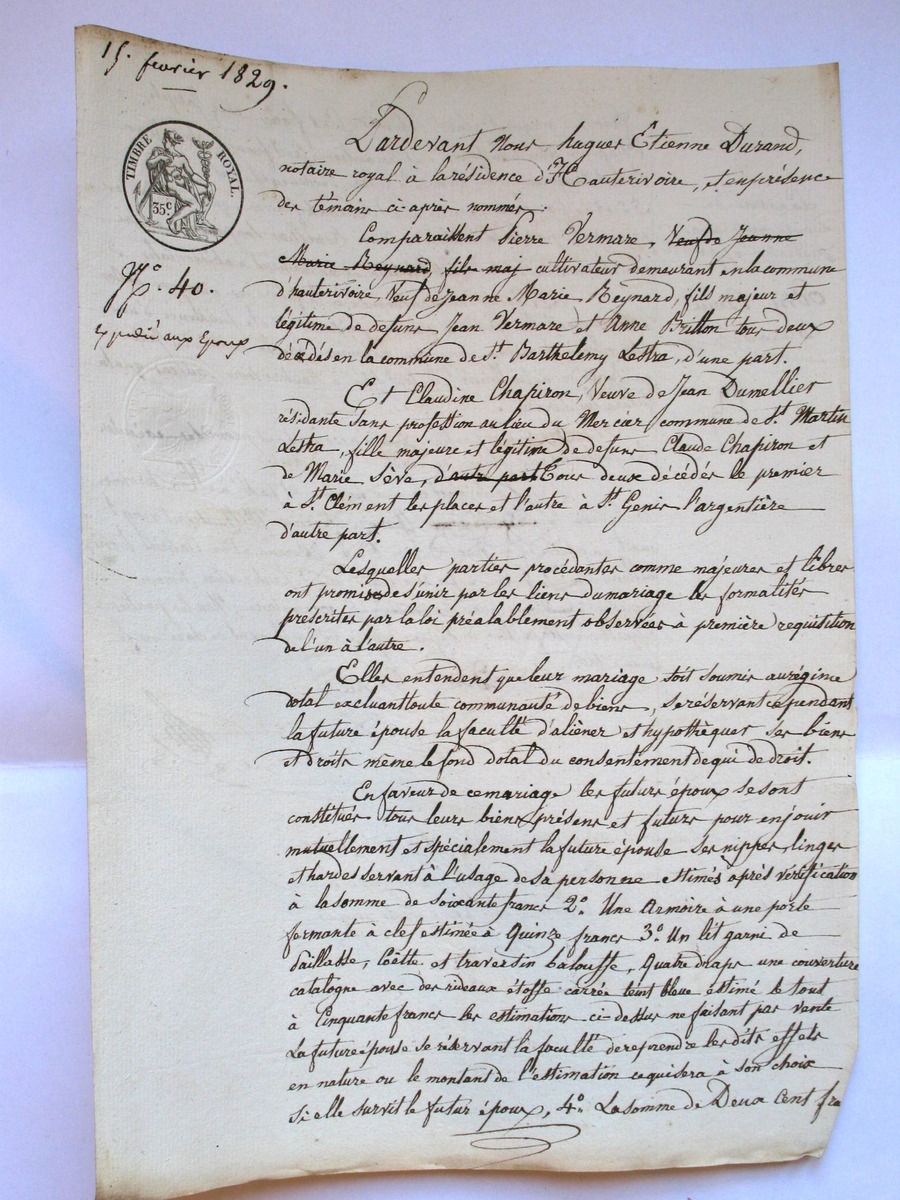 15. fevrier 1829.
TIMBRE ROYAL.
35c
No. 40.
aux Epoux
Pardevant Nous hugues Etienne Durand,
notaire royal à la résidence d'Hauterivoire, et en présence
des témoins ci-après nommés.
Comparaissent Pierre Vermare, Veuf de Jeanne
Marie Reynard, fils maj cultivateur demeurant en la commune
d'hauterivoire, Veuf de Jeanne Marie Reynard, fils majeur et
légitime de defuns Jean Vermare et Anne Brillon tous deux
décédés en la commune de St. Barthelemy Lestra, d'une part.
Et Claudine Chapiron, Veuve de Jean Dumellier
résidante sans profession au lieu du Merciér, commune de St. Martin
Lestra, fille majeure et légitime de defuns Claude Chapiron et
de Marie Sève, d'autre part Tous deux décédés le premier
à St. Clément les places et l'autre à St. Genis l'argentière
d'autre part.
Lesquelles parties procédantes comme majeures et libres
ont promis de s'unir par les liens du mariage les formalités
prescrites par la loi préalablement observées à première requisition
de l'un à l'autre.
Elles entendent que leur mariage soit soumis au régime
dotal excluant toute communauté de biens, se réservant cependant
la future épouse la faculté d'aliéner et hypothéquer ses biens
et droits même le fond dotal du consentement de qui de droit.
En faveur de ce mariage les futurs époux se sont
constitués tous leurs biens présens et futurs pour en jouir
mutuellement et spécialement la future épouse ses nippes linges
et hardes servant à l'usage de sa personne estimés après vérification
à la somme de soixante francs 2o. Une Armoire à une porte
fermante à clef estimée à Quinze francs 3o. Un lit garni de
Paillasse, Coëtte et traversin balouffe, Quatre draps une couverture
catalogne avec des rideaux étoffe carrée teint bleue estimé le tout
à Cinquante francs les estimations ci-dessus ne faisant pas vente
La future épouse se réservant la faculté de reprendre les dits effets
en nature ou le montant de l'estimation ce qui sera à son choix
si elle survit le futur époux, 4o. La somme de Deux Cent fra